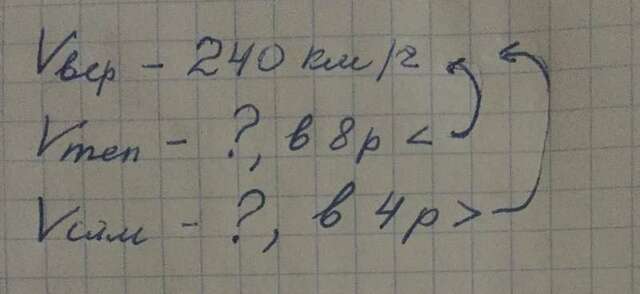 Vвер - 240 км/ч
Vтеп - ?, в 8р <
Vсам - ?, в 4р >